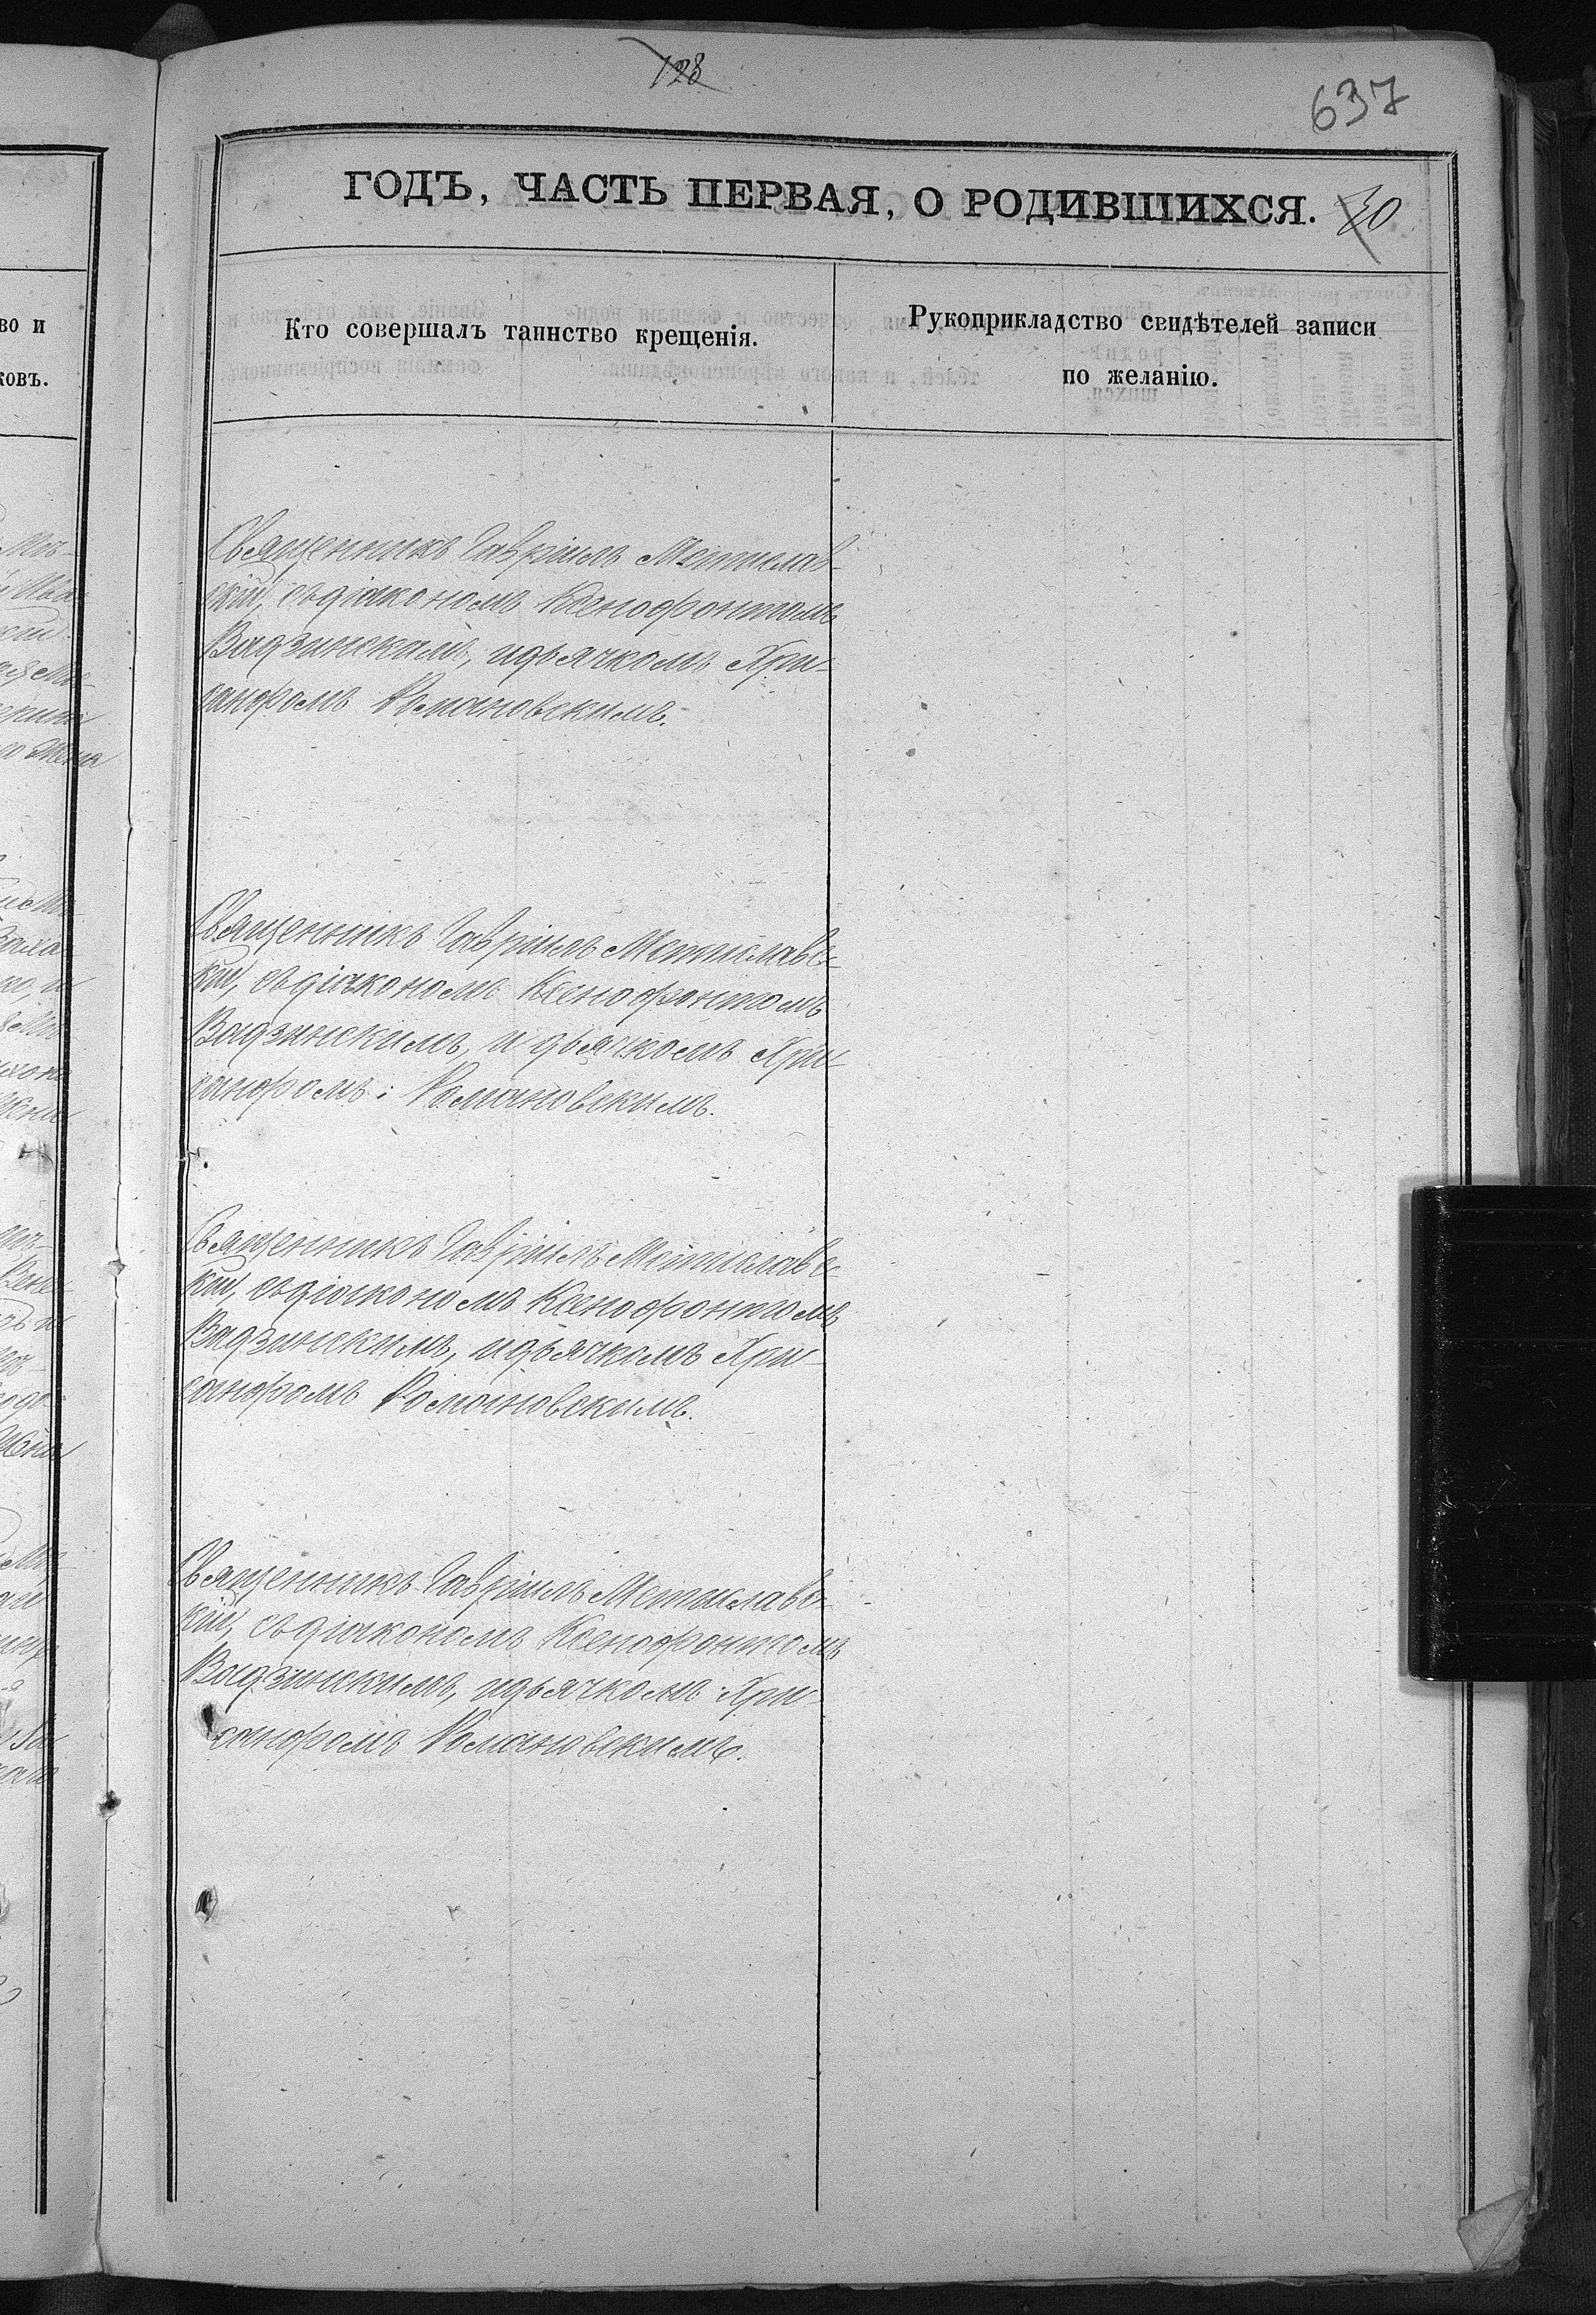 128
637
ГОДЪ, ЧАСТЬ ПЕРВАЯ, О РОДИВШИХСЯ. 30
Кто совершалъ таинство крещенія.
Рукоприкладство свидѣтелей записи
по желанію.
Священникъ Гавріилъ Мстислав-
скій, съ діакономъ Ксенофонтомъ
Вадзинскимъ, и дьячкомъ Хри-
санфомъ Романовскимъ.
Священникъ Гавріилъ Мстиславс-
кій, съ діакономъ Ксенофонтомъ
Вадзинскимъ, и дьячкомъ Хри-
санфомъ Романовскимъ.
Священникъ Гавріилъ Мстиславс-
кій, съ діакономъ Ксенофонтомъ
Вадзинскимъ, и дьячкомъ Хри-
санфомъ Романовскимъ.
Священникъ Гавріилъ Мстиславс-
кій, съ діакономъ Ксенофонтомъ
Вадзинскимъ, и дьячкомъ Хри-
санфомъ Романовскимъ.